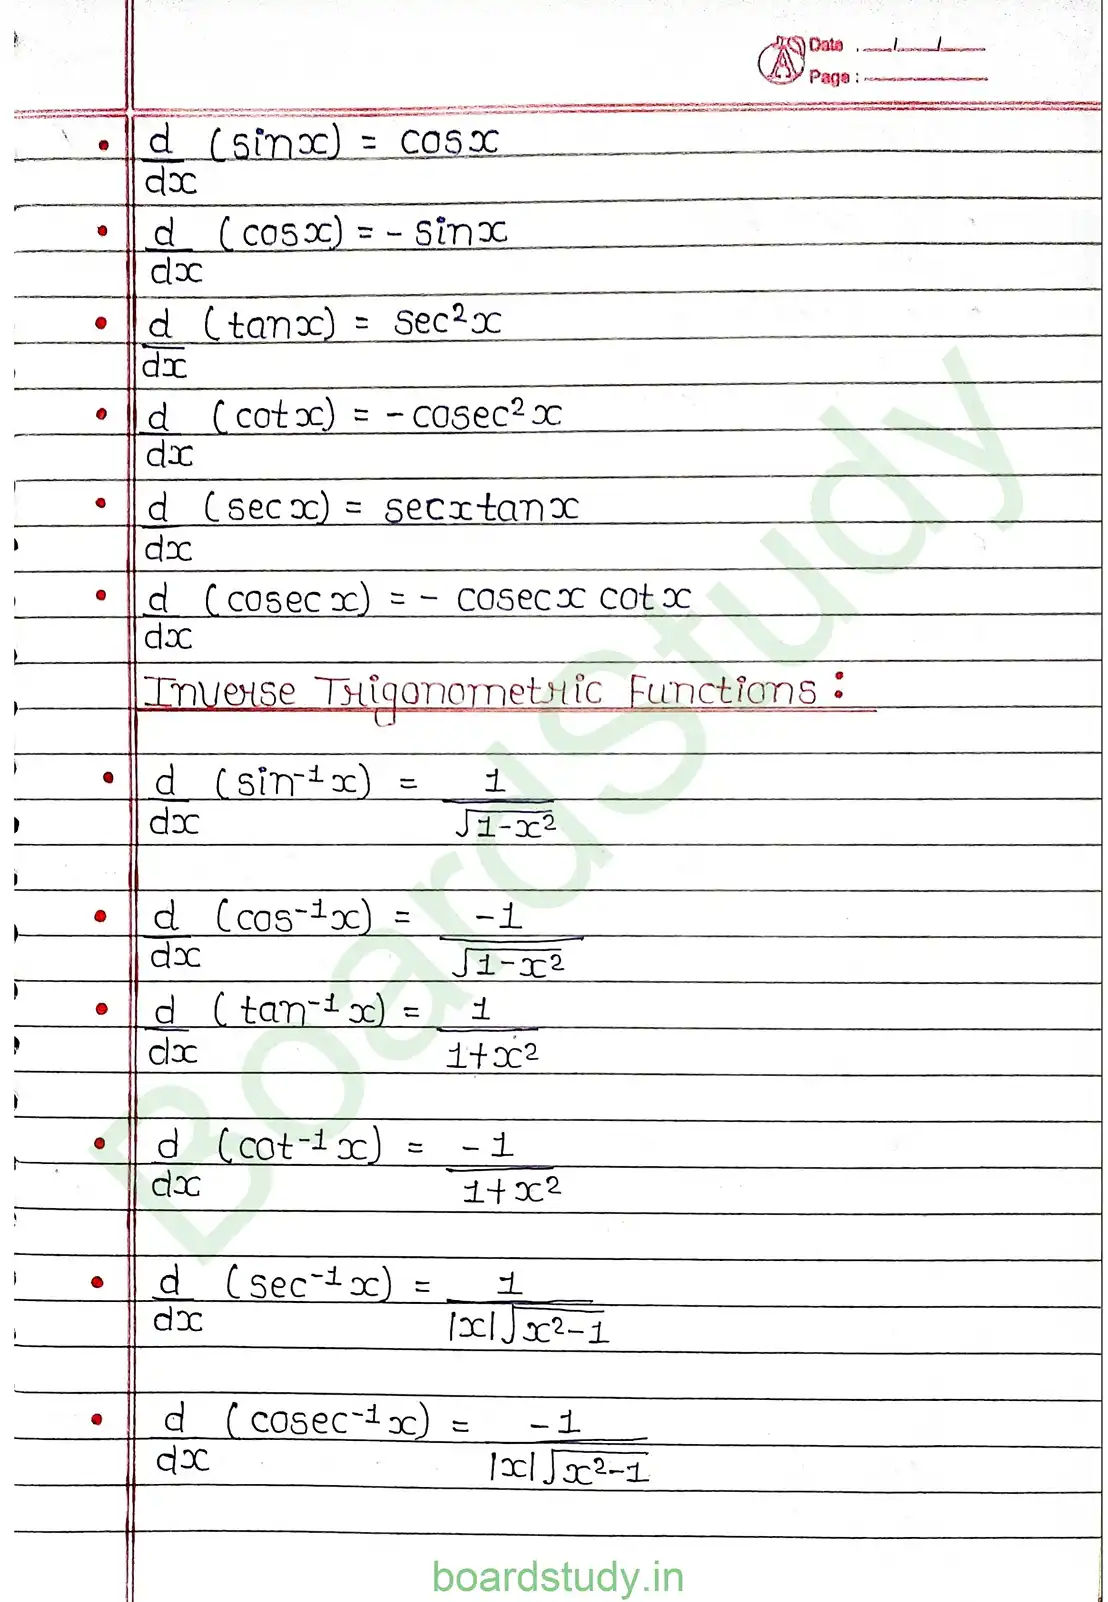 Date : __/__/__
Page :
• d/dx (sinx) = cosx
• d/dx (cosx) = - sinx
• d/dx (tanx) = sec²x
• d/dx (cotx) = - cosec²x
• d/dx (secx) = secxtanx
• d/dx (cosecx) = - cosecx cotx
Inverse Trigonometric Functions :
• d/dx (sin⁻¹x) = 1/√(1-x²)
• d/dx (cos⁻¹x) = -1/√(1-x²)
• d/dx (tan⁻¹x) = 1/(1+x²)
• d/dx (cot⁻¹x) = -1/(1+x²)
• d/dx (sec⁻¹x) = 1/(|x|√(x²-1))
• d/dx (cosec⁻¹x) = -1/(|x|√(x²-1))
BoardStudy
boardstudy.in